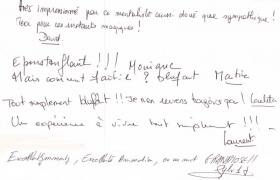 Très impressionné par ce mentaliste aussi doué que sympathique !
Merci pour ces instants magiques !
David.
Epoustouflant !!! Monique
Mais comment fait-il ? bluffant
Tout simplement bluffant !! Je n'en reviens toujours pas ! Laetitia
Une expérience à vivre tout simplement !!!
Laurent
Excellentissimement, Excellente Animation, en un mot GRANDIOSE !!